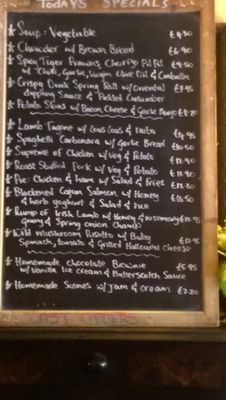 TODAYS SPECIALS
* Soup: Vegetable £4.50
* Chowder w/ Brown Bread £6.90
* Spicy Tiger Prawns, Chorizo Pil Pil £9.50
w/ Chilli, Garlic, Virgin Olive Oil & Ciabatta
* Crispy Duck Spring Roll w/ oriental
dipping Sauce & Pickled Cucumber
* Potato Skins w/ Bacon Cheese & Garlic Mayo
* Lamb Tagine w/ Cous Cous & Raita
* Spaghetti Carbonara w/ Garlic Bread
* Supreme of Chicken w/ Veg & Potato
* Roast Stuffed Pork w/ Veg & Potato
* Pie: Chicken & ham w/ Salad & Fries
* Blackened Cajun Salmon w/ Honey
& herb yoghurt & Salad & rice
* Rump of Irish Lamb w/ Honey & rosemary
gravy & Spring onion Champ
* Wild Mushroom Risotto w/ Baby
Spinach, tomato & Grilled Halloumi cheese
* Homemade chocolate Brownie £5.95
w/ Vanilla Ice cream & Butterscotch Sauce
* Homemade Scones w/ Jam & cream £2.20
LAST ORDERS